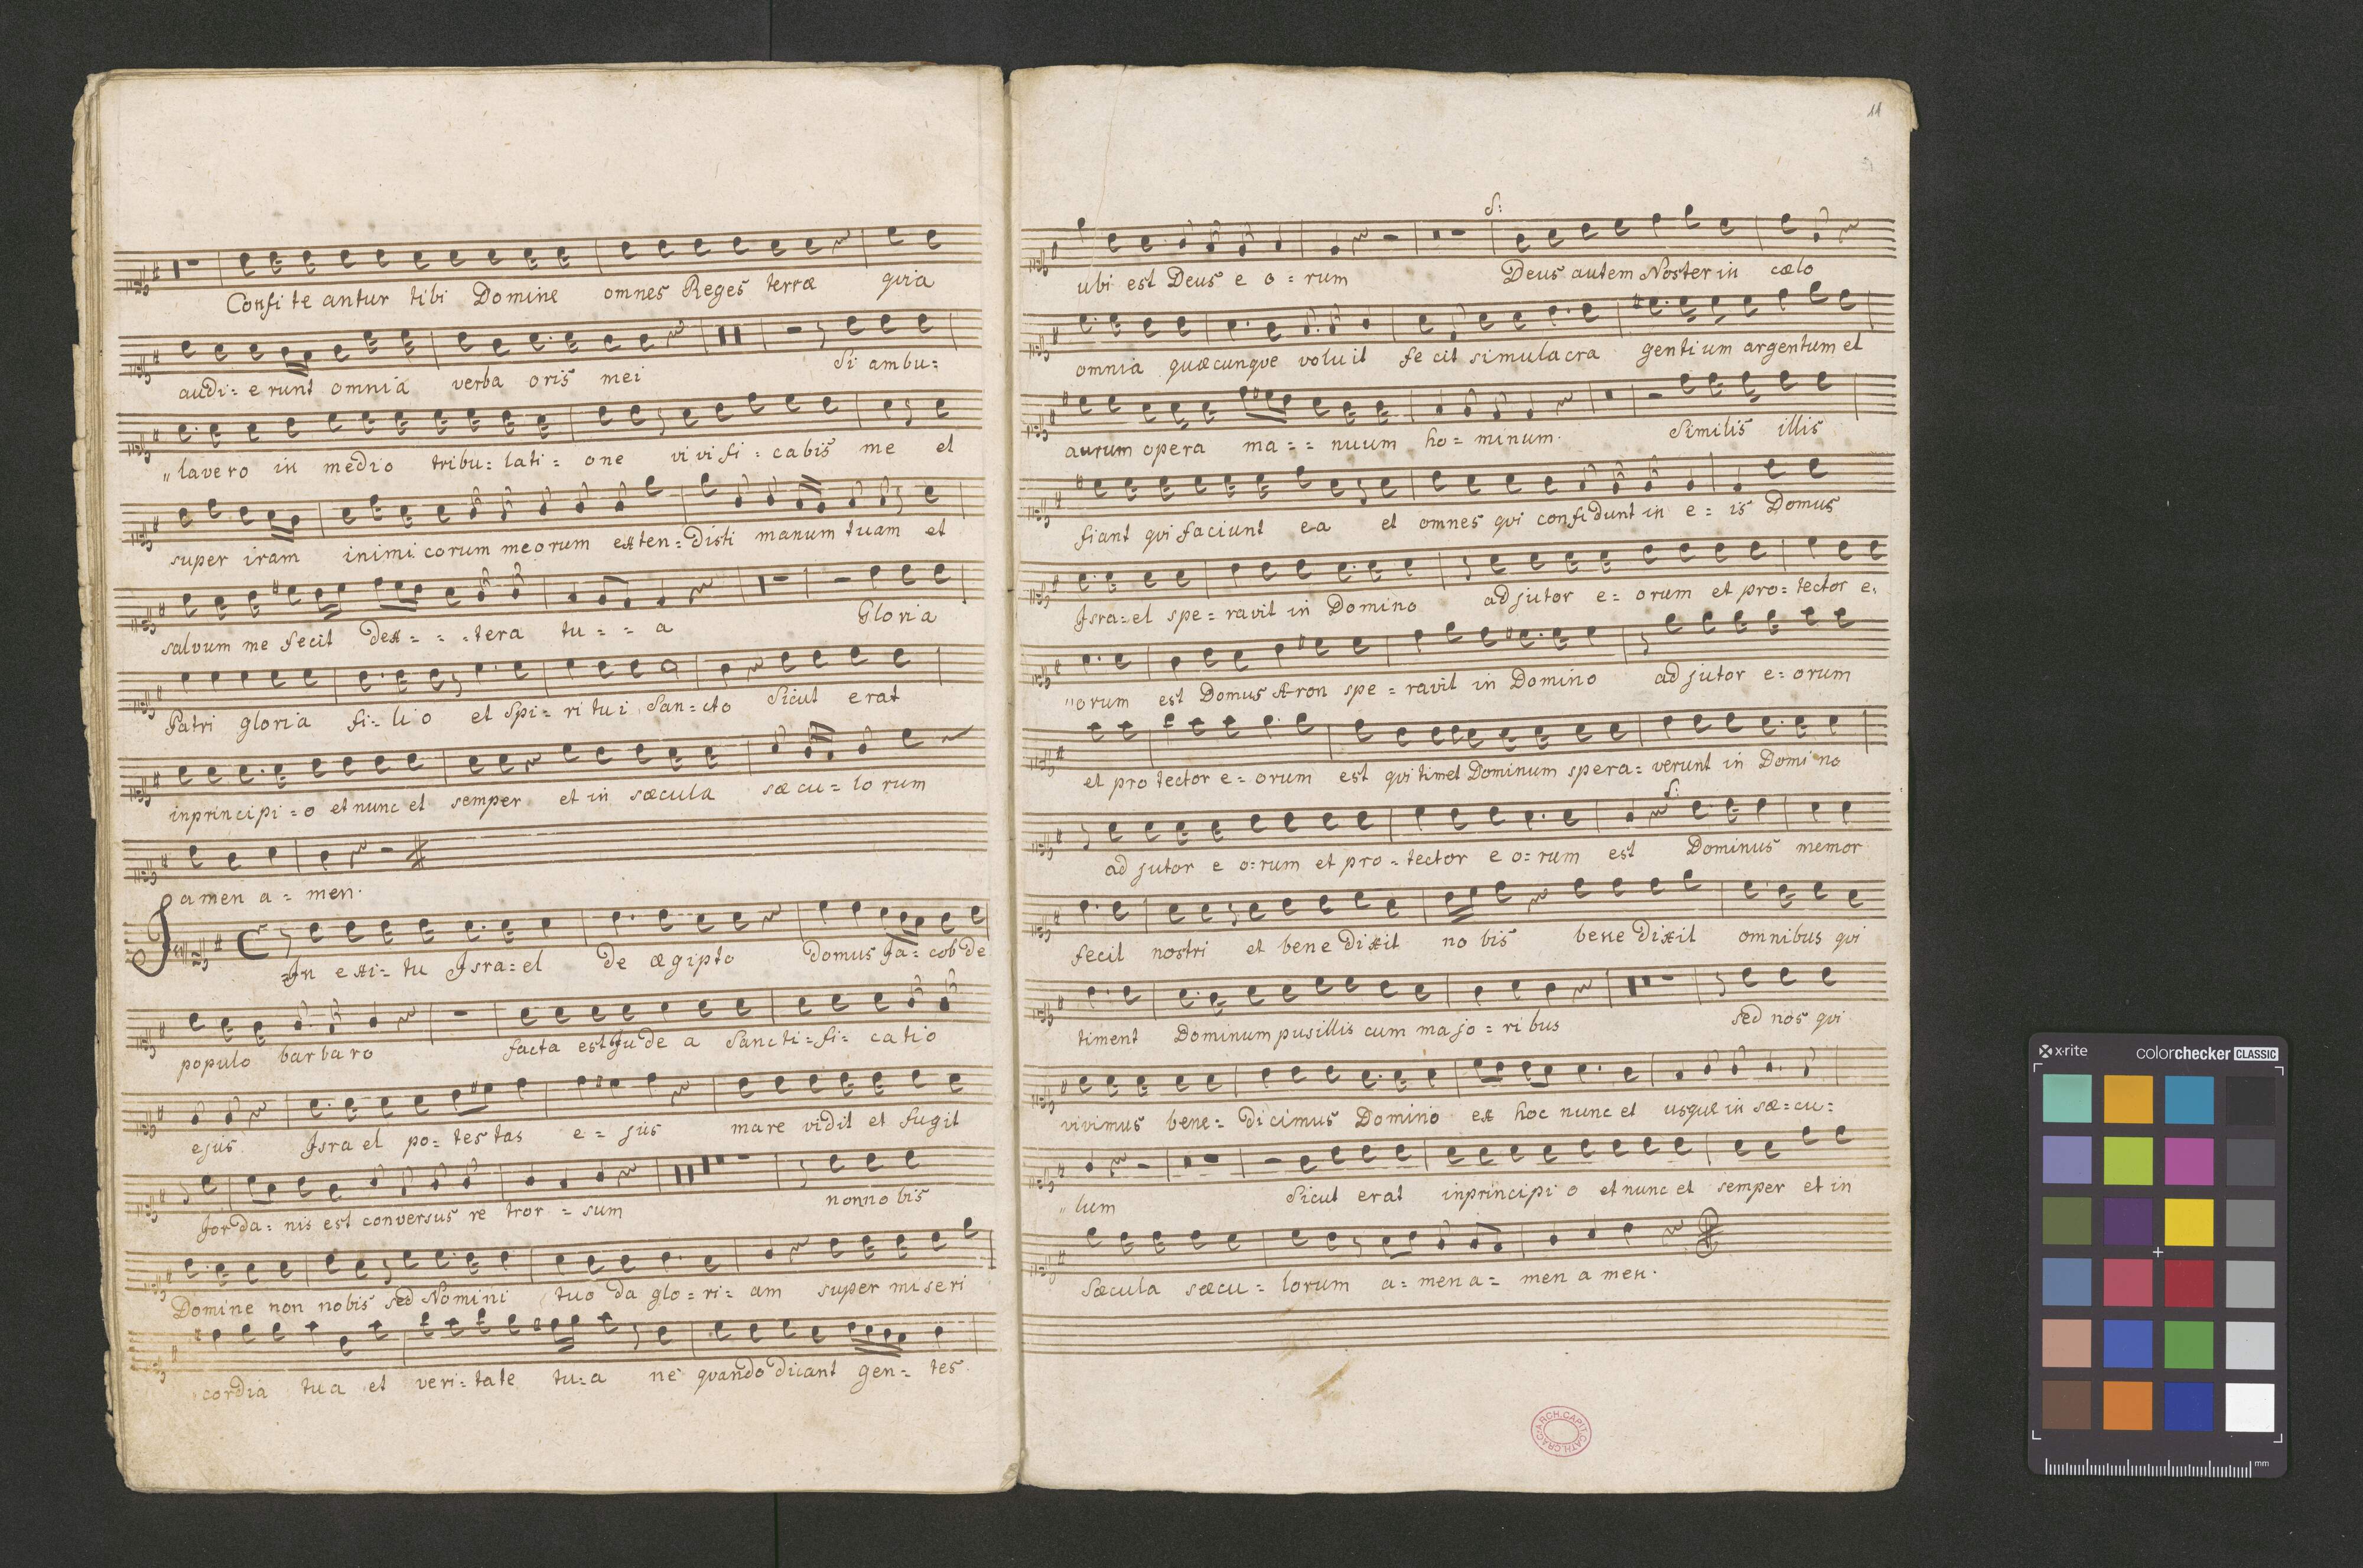 Confi te antur tibi Domine omnes Reges terræ quia
audi= e runt omnia verba oris mei Si ambu=
"lavero in medio tribu= lati= one vi vi fi= cabis me et
super iram inimi corum meorum exten= disti manum tuam et
salvum me fecit dex= = = tera tu= = a Gloria
Patri gloria fi= li o et Spi= ri tu i San= cto Sicut erat
inprincipi= o et nunc et semper et in sæcula sæ cu= lo rum
amen a= men.
In exi= tu Isra= el de ægipto domus Ja= cob de
populo barbaro facta est Jude a Sancti= fi= catio
ejus Isra el po= tes tas e= jus mare vidit et fugit
Jorda= nis est conversus re tror= sum non no bis
Domine non nobis sed Nomini tuo da glo= ri= am super miseri
cordia tua et veri= tate tu= a ne quando dicant gen= tes
11
ubi est Deus e o= rum S: Deus autem Noster in cælo
omnia quæcunque voluit fe cit simulacra gentium argentum et
aurum opera ma= = nuum ho= minum. Similis illis
fiant qui faciunt ea et omnes qui confidunt in e= is Domus
Isra= el spe= ravit in Domino adjutor e= orum et pro= tector e,
"orum est Domus Aron spe= ravit in Domino adjutor e= orum
et protector e= orum est qui timet Dominum spera= verunt in Domino
S:
adjutor e o= rum et pro= tector e o= rum est Dominus memor
fecit nostri et bene dixit no bis bene dixit omnibus qui
timent Dominum pusillis cum majo= ribus sed nos qui
vivimus bene= dicimus Domino ex hoc nunc et usque in sæ= cu=
"lum Sicut erat inprincipi o et nunc et semper et in
Sæcula sæcu= lorum a= men a= men amen.
ARCH. CAPIT. CATH. CRAC.
x·rite colorchecker CLASSIC
mm